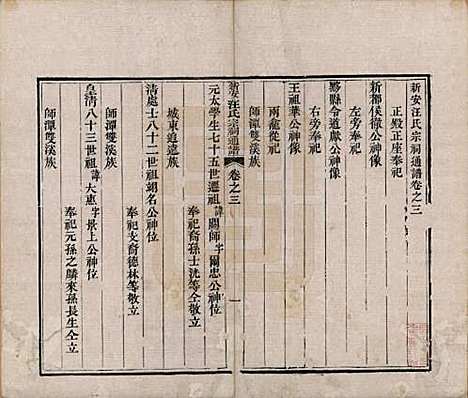 新安汪氏宗祠通譜卷之三
正殿正座奉祀
新都侯徹公神像
左旁奉祀
黟縣令道獻公神像
右旁奉祀
王祖華公神像
兩龍從祀
師潭雙溪族
新安汪氏宗祠通譜 卷之三 一
元太學生七十五世遷祖諱關師字爾忠公神位
奉祀裔孫士洸等仝敬立
城東道遠族
清處士八十二世祖翊名公神位
奉祀文裔德林等敬立
師潭雙溪族
皇清八十三世祖諱大惠字景上公神位
奉祀元孫之麟來孫長生仝立
師潭雙溪族